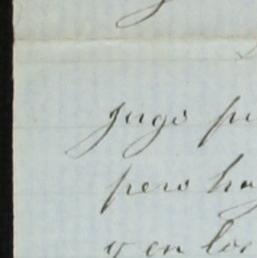 Jugo pu
pero hay
y en los